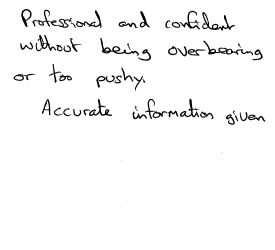 Professional and confident
without being overbearing
or too pushy.
Accurate information given